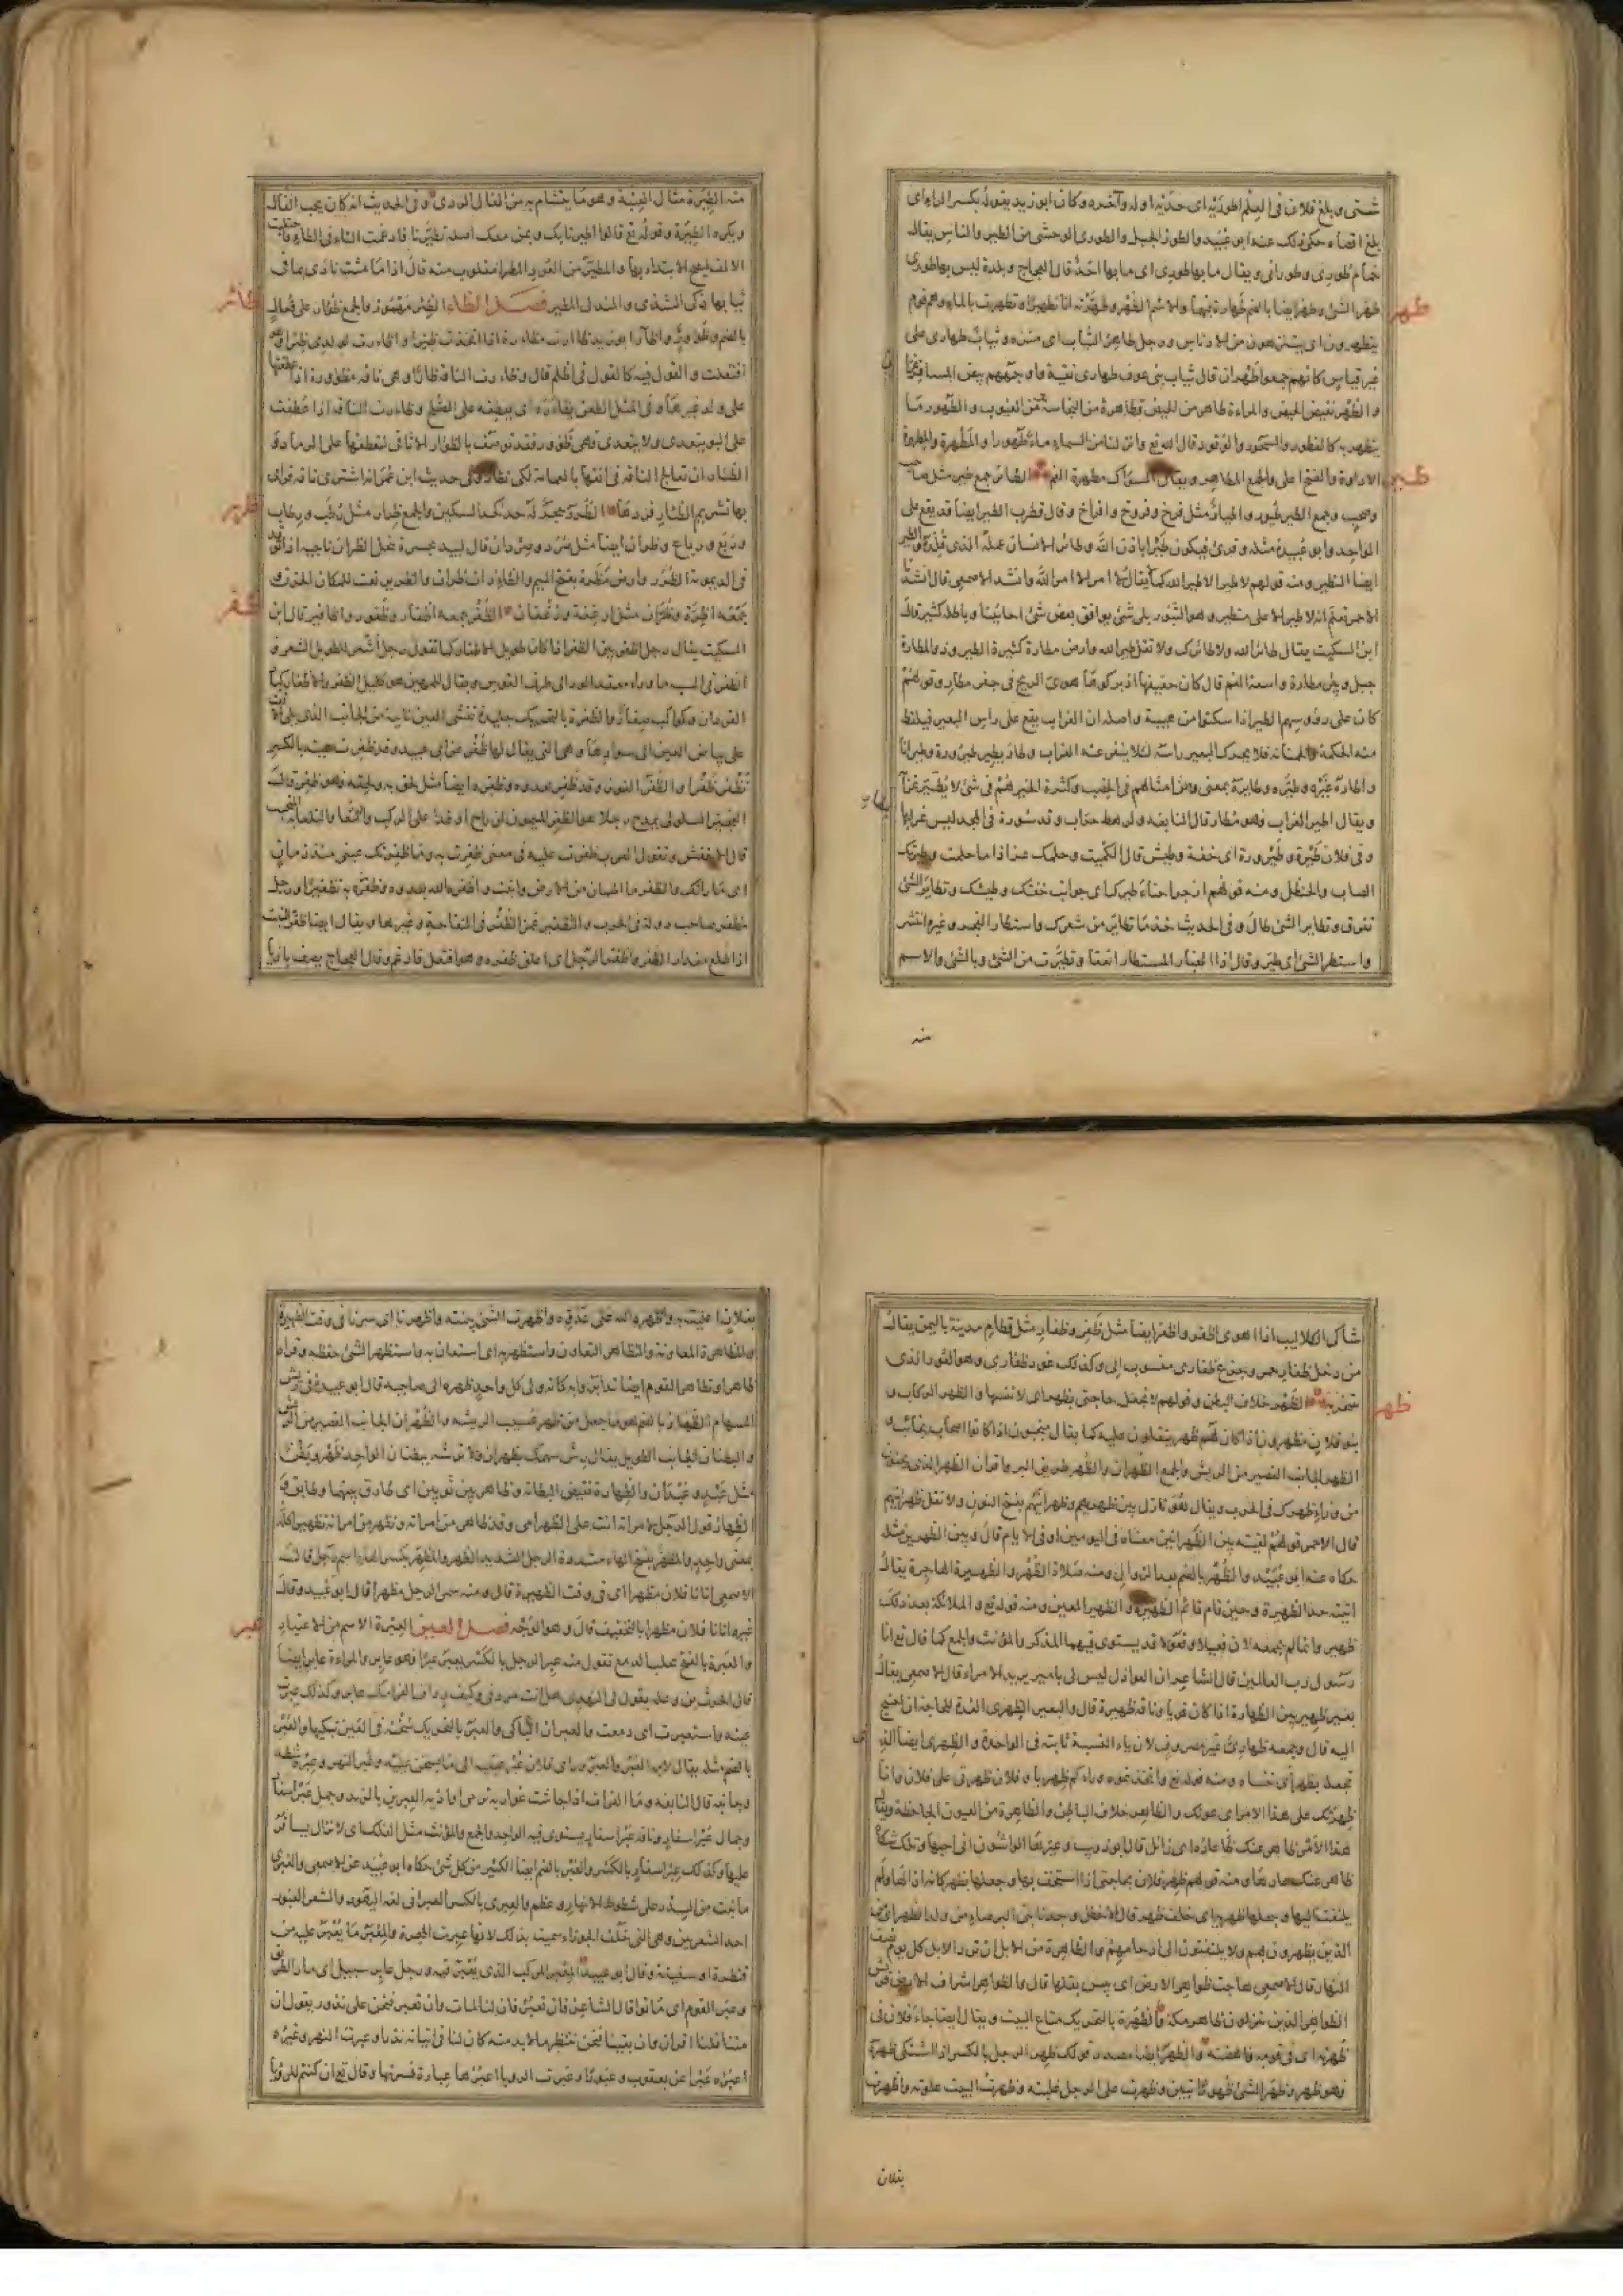 شتى وبلغ فلان في العلم اطوريه اى حديه اوله وآخره وكان ابو زيد يقوله بكسر الراء اى
بلغ اقصاه حكى ذلك عنه ابو عبيد والطور الجبل والطورى الوحشى من الطير والناس يقال
حمام طورى وطورانى ويقال ما بها طورى اى ما بها احد قال العجاج وبلدة ليس بها طورى
طهر
طهر الشئ وطهر ايضا بالضم طهارة فيهما والاسم الطهر وطهرته انا تطهيرا وتطهرت بالماء وهم قوم
يتطهرون اى يتنزهون من الادناس ورجل طاهر الثياب اى متنزه وثياب طهارى على
غير قياس كانهم جمعوا طهران قال ثياب بنى عوف طهارى نقية واوجههم بيض المسافر
والطهر نقيض الحيض والمراءة طاهر من الحيض وطاهرة من النجاسة ومن العيوب والطهور ما
يتطهر به كالفطور والسحور والوقود قال الله تع وانزلنا من السماء ماء طهورا والمطهرة والمطهرة
الاداوة والفتح اعلى والجمع المطاهر ويقال السواك مطهرة للفم الطائر جمعه طير مثل صاحب
طير
وصحب وجمع الطير طيور واطيار مثل فرخ وفروخ وافراخ وقال قطرب الطير ايضا قد يقع على
الواحد وابو عبيدة مثله وقرئ فيكون طيرا باذن الله وطائر الانسان عمله الذى قلده والطير
ايضا التطير ومنه قولهم لا طير الا طير الله كما يقال لا امر الا امر الله وانشد الاصمعى قال انشدنا
الاحمر تعلم انه لا طير الا على متطير وهو الثبور بلى شئ يوافق بعض شئ احايينا وباطله كثير قال
ابن السكيت يقال طائر الله ولا طائرك ولا تقل طير الله وارض مطارة كثيرة الطير وذو المطارة
جبل وبئر مطارة واسعة الفم قال كان حفيفها اذ بركوها هوى الريح فى جفر مطار وقولهم
كان على رؤوسهم الطير اذا سكتوا من هيبة واصله ان الغراب يقع على راس البعير فيلتقط
منه الحلمة والحمنانة فلا يحرك البعير راسه لئلا ينفر عنه الغراب وطار يطير طيرورة وطيرانا
واطاره غيره وطيره وطايره بمعنى ومن امثالهم فى الخصب وكثرة الخير هم فى شئ لا يطير غرابه
ويقال اطير الغراب فهو مطار قال النابغة ولرهط حراب وقد سورة فى المجد ليس غرابها
وفى فلان طيرة وطيرورة اى خفة وطيش قال الكميت وحلمك عز اذا ما حلمت وطيرتك
الصاب والحنظل ومنه قولهم ازجر احناء طيرك اى جوانب خفتك وطيشك وتطاير الشئ
تفرق وتطاير الشئ طال وفى الحديث خذ ما تطاير من شعرك واستطار الفجر وغيره انتشر
واستطير الشئ اى طير وقال اذا الغبار المستطار انعقا وتطيرت من الشئ وبالشئ والاسم
منه
منه الطيرة مثال العنبة وهو ما يتشاءم به من الفال الردى وفى الحديث انه كان يحب الفال
ويكره الطيرة وقوله تع قالوا اطيرنا بك وبمن معك اصله تطيرنا فادغمت التاء فى الطاء واجتلبت
الالف ليصح الابتداء بها والمطير من العود المطرا مقلوب منه قال اذا ما مشت نادى بما فى
ثيابها ذكى الشذى والمندلى المطير فصل الظاء الظئر مهموز والجمع ظؤار على فعال
ظائر
بالضم وظؤور واظآر ابو زيد ظاءرت مظاءرة اذا اتخذت ظئرا واظاءرت لولدى ظئرا وهو
افتعلت والقول فيه كالقول فى اظلم قال وظاءرت الناقة ظارا وهى ناقة مظؤورة اذا عطفتها
على ولد غيرها وفى المثل الطعن يظاءره اى يعطفه على الصلح وظاءرت الناقة اذا عطفت
على البو يتعدى ولا يتعدى فهى ظؤور وقد توصف بالظؤار الاثافى لتعطفها على الرماد و
الظئار ان تعالج الناقة فى انفها بالغمامة لكى تظار وفى حديث ابن عمر انه اشترى ناقة فراى
بها تشريم الظئار فردها الظرر حجر له حد كحد السكين والجمع ظرار مثل رطب ورطاب
ظرر
وربع ورباع وظران ايضا مثل صرد وصردان قال لبيد بجسرة تنجل الظران ناجية اذا توقد
فى الديمومة الظرر وارض مظرة بفتح الميم والظاء ذات ظران والظرير نعت للمكان الحزن
جمعه اظرة وظران مثل ارغفة ورغفان الظفر جمعه اظفار وظفور واظافير قال ابن
ظفر
السكيت يقال رجل اظفر بين الظفر اذا كان طويل الاظفار كما تقول رجل اشعر للطويل الشعر و
الظفر فى السية ما وراء معقد الوتر الى طرف القوس ويقال للمهين هو كليل الظفر والاظفار كبار
القردان وكواكب صغار والظفرة بالتحريك جليدة تغشى العين ناتئة من الجانب الذى يلى الانف
على بياض العين الى سوادها وهى التى يقال لها ظفر عن ابى عبيد وقد ظفرت عينه بالكسر
تظفر ظفرا والظفر الفوز وقد ظفر بعدوه وظفره ايضا مثل لحق به ولحقه فهو ظفر قال
العجير السلولى يمدح رجلا هو الظفر الميمون ان راح او غدا به الركب والتلعابة المتحبب
قال الاخفش وتقول العرب ظفرت عليه فى معنى ظفرت به وما ظفرتك عينى منذ زمان
اى ما راتك والظفر ما اطمان من الارض وانبت واظفره الله بعدوه وظفره به تظفيرا ورجل
مظفر صاحب دولة فى الحرب والتظفير غمز الظفر فى التفاحة وغيرها ويقال ايضا ظفر النبت
اذا طلع مقدار الظفر واظفر الرجل اى اعلق ظفره وهو افتعل فادغم وقال العجاج يصف بازيا
شاك الكلاليب اذا اهوى اظفر واظفر ايضا مثل ظفر وظفار مثل قطام مدينة باليمن يقال
من دخل ظفار حمر وجزع ظفارى منسوب اليها وكذلك عود ظفارى وهو العود الذى
يتبخر به الظهر خلاف البطن وقولهم لا تجعل حاجتى بظهر اى لا تنسها والظهر الركاب و
ظهر
بنو فلان مظهرون اذا كان لهم ظهر ينقلون عليه كما يقال منجبون اذا كانوا اصحاب نجائب و
الظهر الجانب القصير من الريش والجمع الظهران والظهر طريق البر واقران الظهر الذين يجيئون
من وراء ظهرك فى الحرب ويقال هو نازل بين ظهريهم وظهرانيهم بفتح النون ولا تقل ظهرانيهم
قال الاحمر قولهم لقيته بين الظهرانين معناه فى اليومين او فى الايام قال وبين الظهرين مثله
حكاه عنه ابو عبيد والظهر بالضم بعد الزوال ومنه صلاة الظهر والظهيرة الهاجرة يقال
اتيته حد الظهيرة وحين قام قائم الظهيرة والظهير المعين ومنه قوله تع والملائكة بعد ذلك
ظهير وانما لم يجمعه لان فعيلا وفعولا قد يستوى فيهما المذكر والمؤنث والجمع كما قال تع انا
رسول رب العالمين قال الشاعر ان العواذل ليس لى بامير يريد الامراء قال الاصمعى يقال
بعير ظهير بين الظهارة اذا كان قويا وناقة ظهيرة قال والبعير الظهرى العدة للحاجة ان احتيج
اليه قال وجمعه ظهارى غير مصروف لان ياء النسبة ثابتة فى الواحد و الظهرى ايضا الذى
تجعله بظهر اى تنساه ومنه قوله تع واتخذتموه وراءكم ظهريا وفلان ظهرتى على فلان وانا
ظهرتك على هذا الامر اى عونك والظاهر خلاف الباطن والظاهرة من العيون الجاحظة ويقال
هذا الامر ظاهر عنك عاره اى زائل قال ابو ذويب وعيرها الواشون انى احبها وتلك شكاة
ظاهر عنك عارها ومنه قولهم ظهر فلان بحاجتى اذا استخف بها وجعلها بظهر كانه ازالها ولم
يلتفت اليها وجعلها ظهرية اى خلف ظهر قال الاخطل وجدنا بنى البرصاء من ولد الظهر اى من
الذين يظهرون بهم ولا يلتفتون الى ارحامهم والظاهرة من الابل ان ترد الابل كل يوم نصف
النهار قال الاصمعى هاجت ظواهر الارض اى يبس بقلها قال والظواهر اشراف الارض
الظواهر الذين ينزلون ظاهر مكة والظهرة بالتحريك متاع البيت ويقال ايضا جاء فلان فى
ظهرته اى فى قومه وناهضته والظهر ايضا مصدر قولك ظهر الرجل بالكسر اذا اشتكى ظهره
فهو ظهر وظهر الشئ ظهورا تبين وظهرت على الرجل غلبته وظهرت البيت علوته واظهرت
بفلان
بفلان اعليت به واظهره الله على عدوه واظهرت الشئ بينته واظهرنا اى سرنا فى وقت الظهيرة
والمظاهرة المعاونة والتظاهر التعاون واستظهر به اى استعان به واستظهر الشئ حفظه وقراه
ظاهرا وتظاهر القوم ايضا تدابروا كانه ولى كل واحد ظهره الى صاحبه قال ابو عبيدة فى ريش
السهام الظهار بالضم هو ما جعل من ظهر عسيب الريشة والظهران الجانب القصير من الريش
والبطنان الجانب الطويل يقال رش سهمك بظهران ولا ترشه ببطنان الواحد ظهر وبطن
مثل عبد وعبدان والظهارة نقيض البطانة وظاهر بين ثوبين اى طارق بينهما وطابق و
الظهار قول الرجل لامراته انت على كظهر امى وقد ظاهر من امراته وتظهر من امراته تظهيرا كله
بمعنى واحد والمظهر بفتح الهاء مشددة الرجل الشديد الظهر والمظهر بكسر الهاء اسم رجل قال
الاصمعى اتانا فلان مظهرا اى فى وقت الظهيرة قال ومنه سمى الرجل مظهرا قال ابو عبيد وقال
غيره اتانا فلان مظهرا بالتخفيف قال وهو الوجه فصل العين العبرة الاسم من الاعتبار
عبر
والعبرة بالفتح تحلب الدمع تقول منه عبر الرجل بالكسر يعبر عبرا فهو عابر والمراءة عابر ايضا
قال الحرث بن وعلة يقول لى النهدى هل انت مردفى وكيف رداف الفر امك عابر وكذلك عبرت
عينه واستعبرت اى دمعت والعبران الباكى والعبر بالتحريك سخنة فى العين تبكيها والعبر
بالضم مثله يقال لامه العبر والعبر وراى فلان عبر عينيه اى ما يسخن عينيه وعبر النهر وعبره شطه
وجانبه قال النابغة وما الفرات اذا جاشت غواربه ترمى اواذيه العبرين بالزبد وجمل عبر اسفار
وجمال عبر اسفار وناقة عبر اسفار يستوى فيه الواحد والجمع والمؤنث مثل الفلك اى لا تزال يسافر
عليها وكذلك عبر اسفار بالكسر والعبر بالضم ايضا الكثير من كل شئ حكاه ابو عبيد عن الاصمعى والعبرى
ما نبت من السدر على شطوط الانهار وعظم والعبرى بالكسر العبرانى لغة اليهود والشعرى العبور
احدى الشعريين وهى التى خلف الجوزاء سميت بذلك لانها عبرت المجرة والمعبر ما يعبر عليه من
قنطرة او سفينة وقال ابو عبيد المعبر المركب الذى يعبر فيه ورجل عابر سبيل اى مار الطريق
وعبر القوم اى ماتوا قال الشاعر فان نعبر فان لنا لمات وان نعبر فنحن على نذور يقول ان
متنا فلنا اقران وان بقينا فنحن ننتظر ما لا بد منه كان لنا فى اتيانه نذرا وعبرت النهر وغيره
اعبره عبرا عن يعقوب وعبورا وعبرت الرويا اعبرها عبارة فسرتها وقال تع ان كنتم للرؤيا